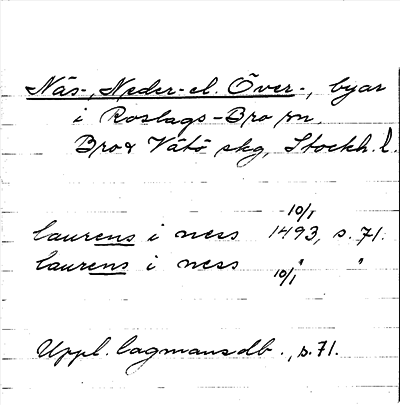 Näs-, Neder- el. Över-, byar
i Roslags-Bro sn,
Bro & Vätö skg, Stockh. l.
laurens i ness 10/1 1493, s. 71.
laurens i ness 10/1 " "
Uppl. lagmansdb., s. 71.